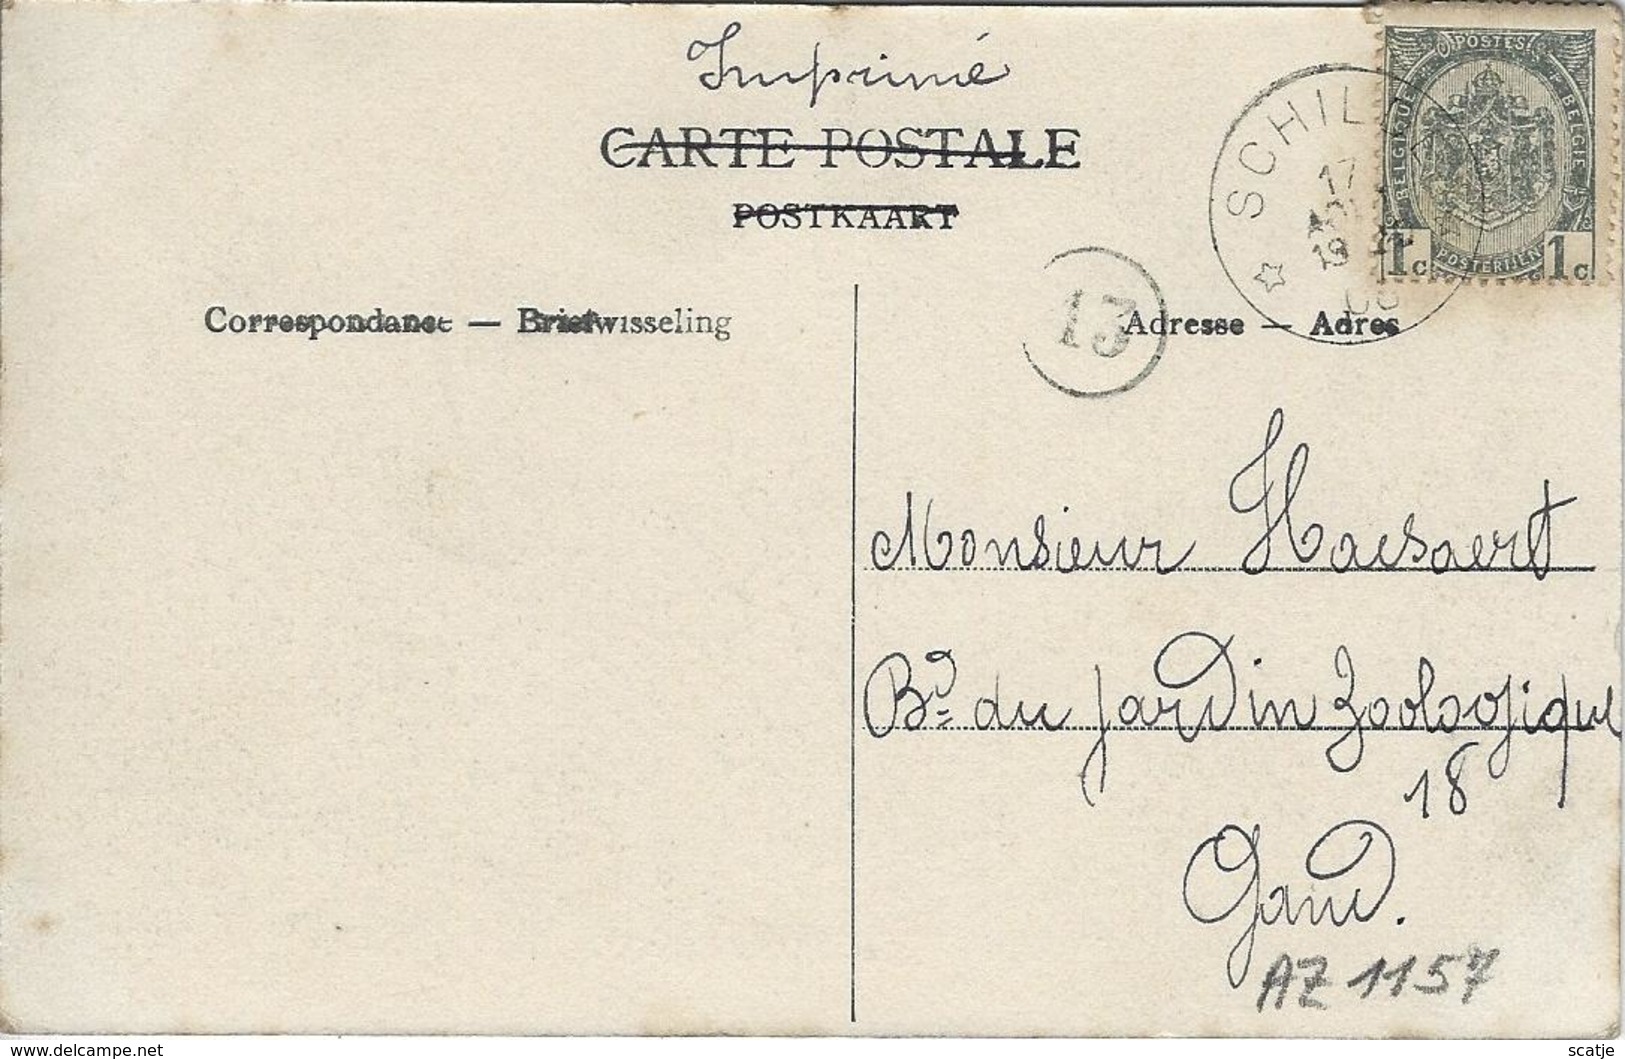 Imprimé
CARTE POSTALE
POSTKAART
POSTES
BELGIQUE
BELGIE
POSTERIJEN
1c 1c
SCHIL
17
19
13
Correspondance — Briefwisseling
Adresse — Adres
Monsieur Haesaert
Bd du Jardin Zoologique
18
Gand.
AZ 1157
delcampe.net
scatje